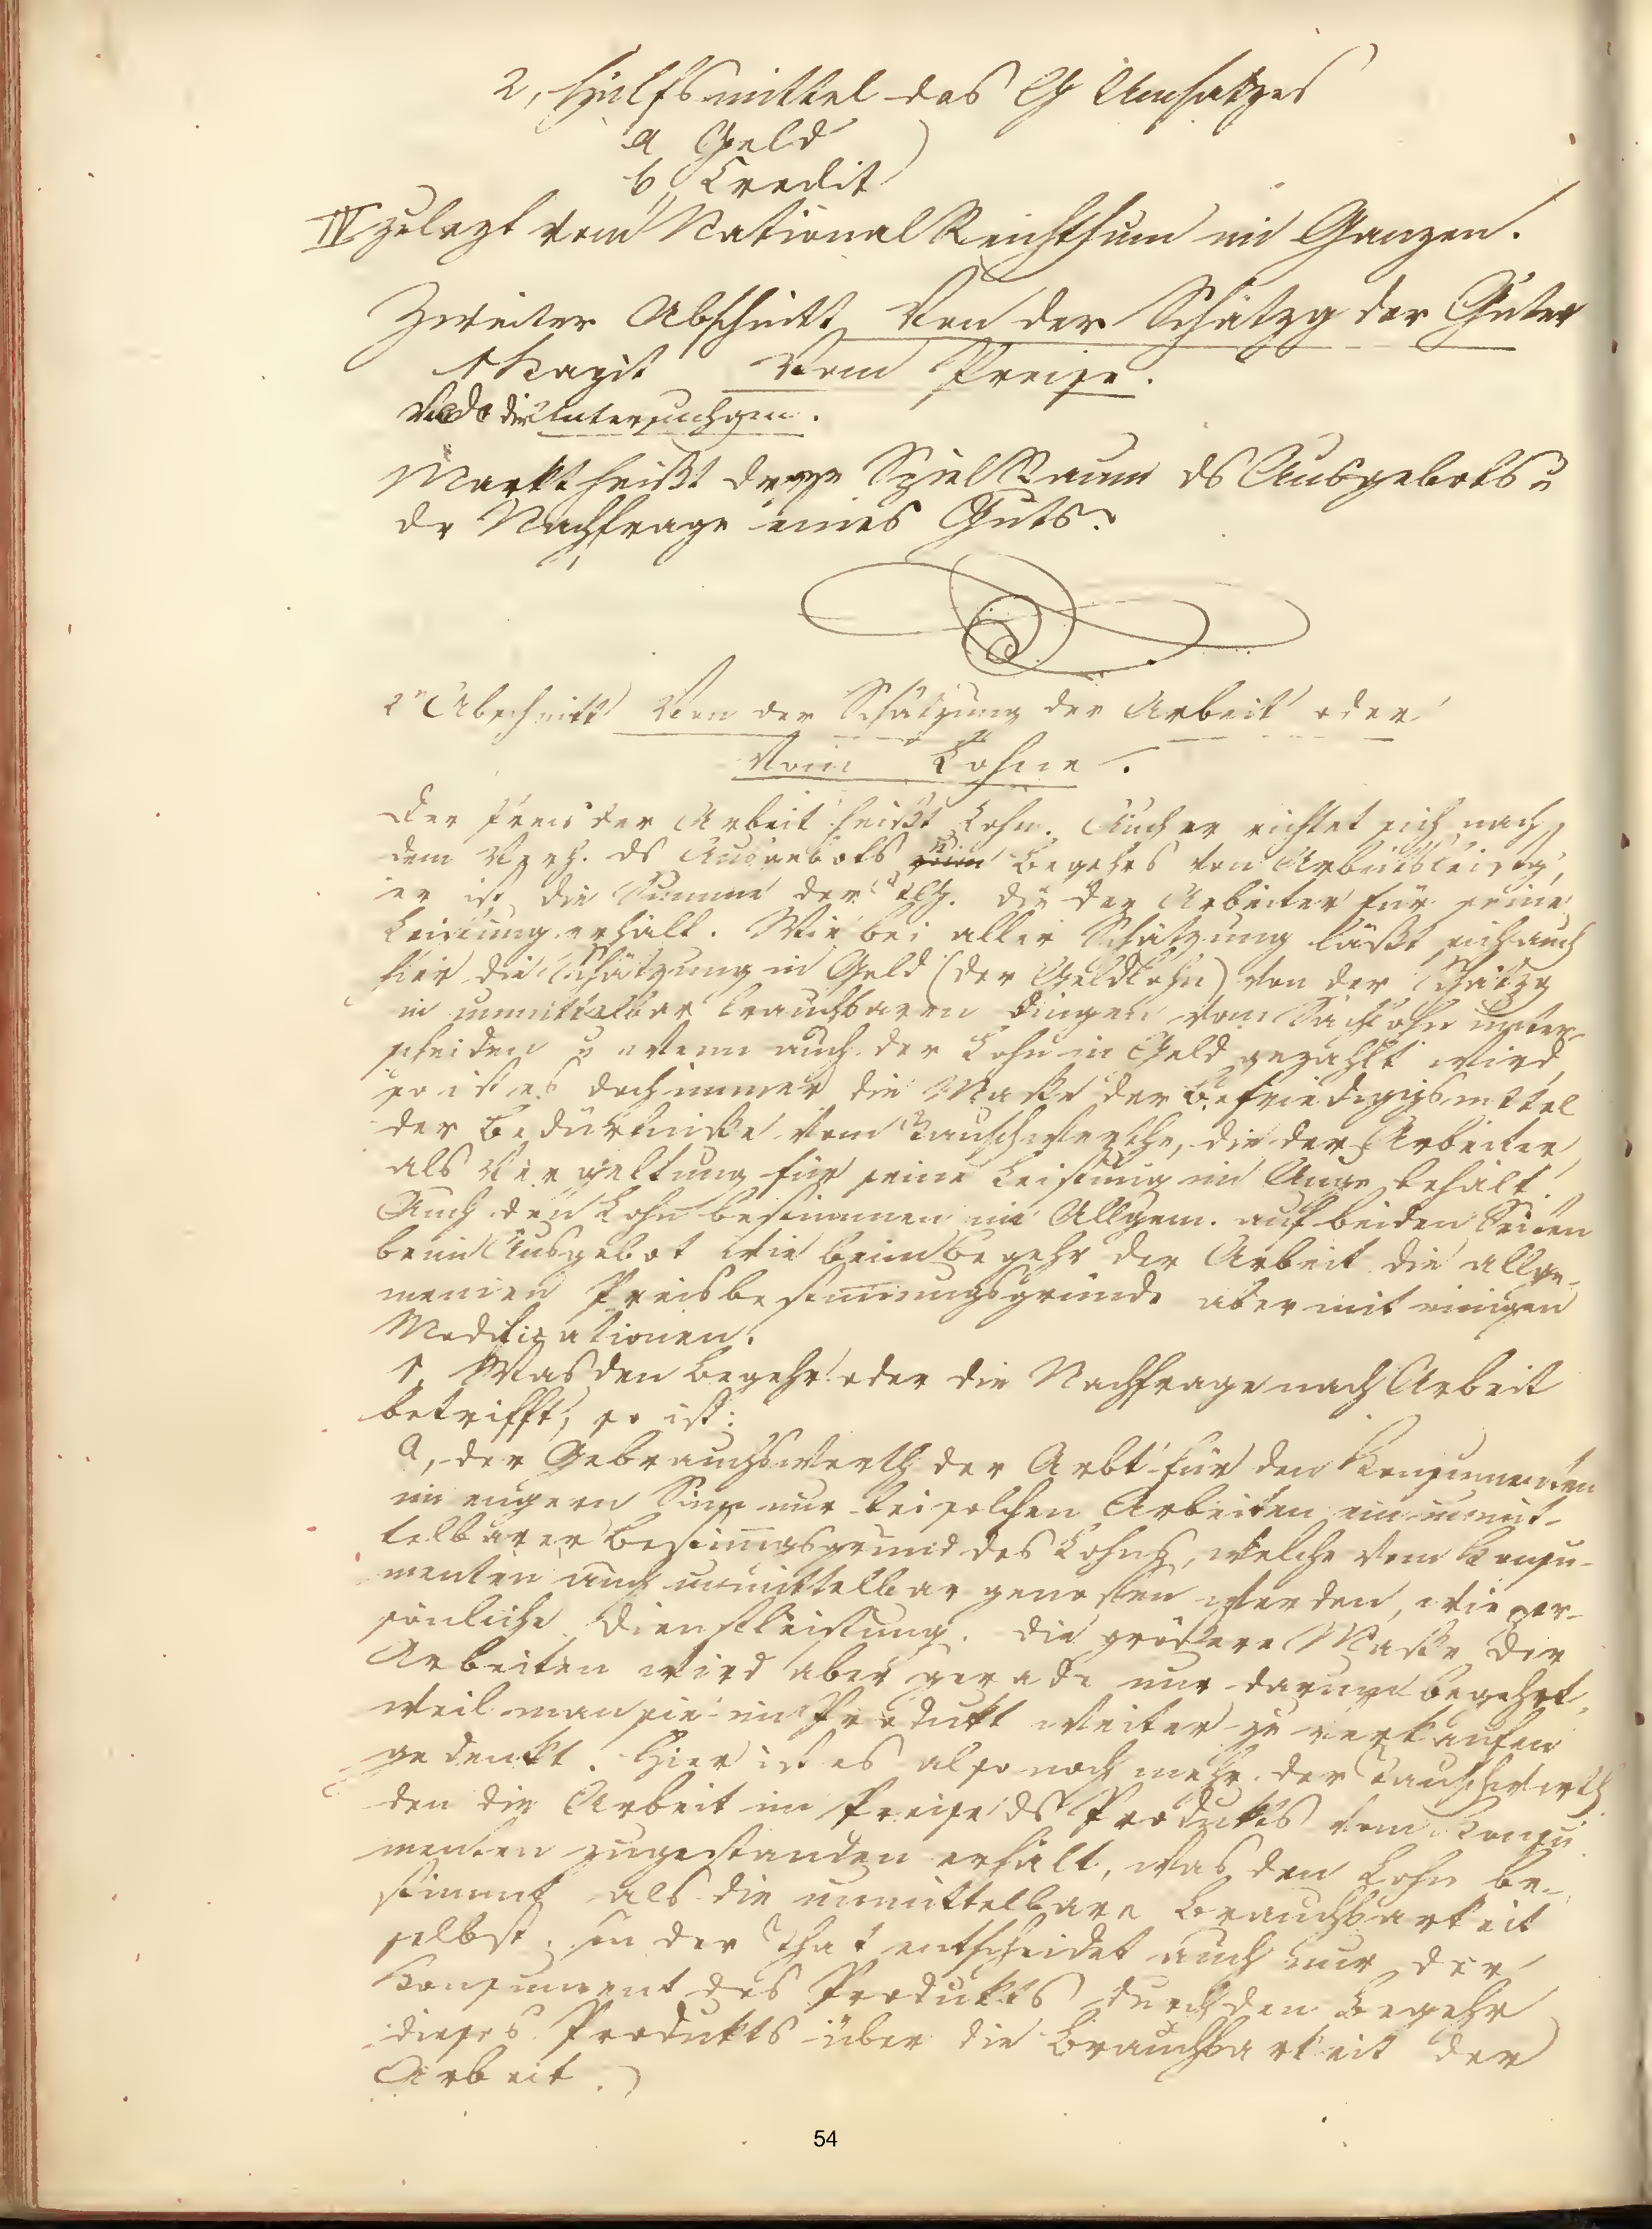 2, Hülfsmittel des G Umsatzes
a Geld
b, Credit
IV zulezt vom National Reichthum im Ganzen.
Zweiter Abschnitt, Von der Schätzg der Güter
1 Kapit Vom Preise.
Untersuchgen.
Markt heißt der SpielRaum ds Ausgebots u
dr Nachfrage eines Guts.
2r Abschnitt Von der Schätzung der Arbeit oder
Vom Lohne.
Der Preis der Arbeit heißt Lohn. Auch er richtet sich nach
dem Verh. ds Ausgebots u Begehrs von Arbeitsleistg,
er ist die Summe der die der Arbeiter für seine
Leistung erhält. Wie bei aller Schätzung läßt sich auch
hier die Schätzung in Geld (der Geldlohn) von der Schätzg
in unmittelbar brauchbaren Dingen vom Sachlohn unter-
scheiden u wenn auch der Lohn in Geld gezahlt wird,
so ist es doch immer die Maße der Befriedigigsmittel
der Bedürfniße vom Tauschwerthe, die der Arbeiter
als Vergeltung für seine Leistung im Auge behält.
Auch den Lohn bestimmen im Allgem. auf beiden Seiten
beim Ausgebot wie beim Begehr der Arbeit die allge-
meinen Preisbestimmungsgründe aber mit einigen
Modifizationen.
1, Was den Begehr oder die Nachfrage nach Arbeit
betrifft, so ist:
a, der Gebrauchswerth der Arbt für den Konsumenten
im engern Sinne nur bei solchen Arbeiten ein unmit-
telbarer Bestimgsgrund des Lohns, welche vom Konsu-
menten auch unmittelbar genoßen werden, wie per-
sönliche Dienstleistung. Die größere Maße der
Arbeiten wird aber gerade nur darum begehrt,
weil man sie im Produkt weiter zu verkaufen
gedenkt. Hier ist es also noch mehr der Tauschwerth
den die Arbeit im Preise ds Produkts vom Konsu
menten zugestanden erhält, was den Lohn be-
stimmt als die unmittelbare Brauchbarkeit
selbst. In der That entscheidet auch nur der
Konsument des Produkts durch den Begehr
dieses Produkts über die Brauchbarkeit der
Arbeit.
54